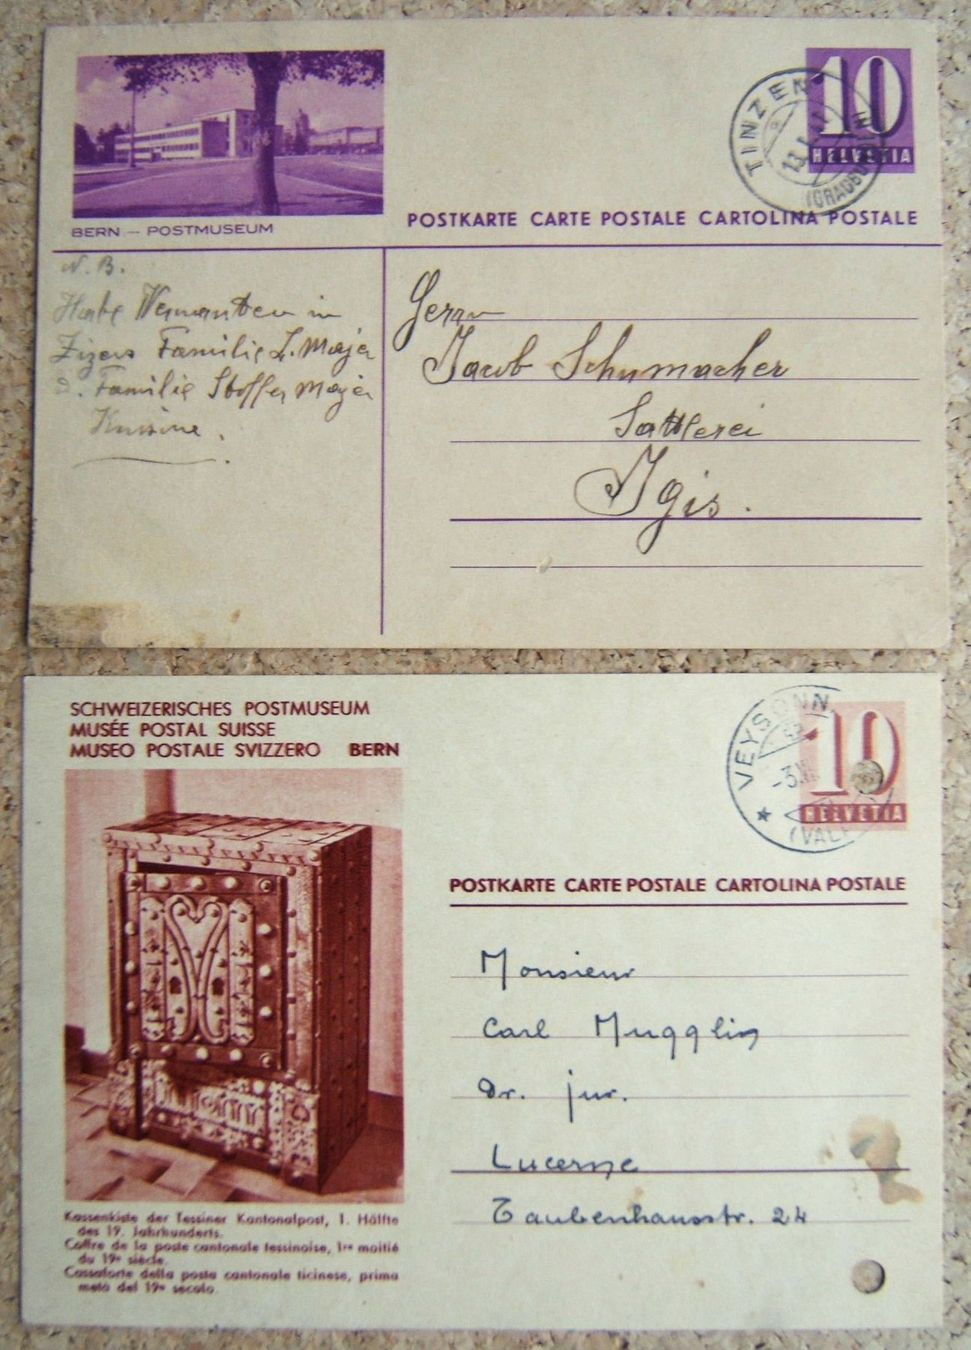 10
HELVETIA
TINZEN
(GRAUBÜNDEN)
BERN — POSTMUSEUM
POSTKARTE CARTE POSTALE CARTOLINA POSTALE
N. B.
Habe Verwandten in
Zizers Familie L. Majer
Familie Stoffer Majer
Herrn
Jacob Schumacher
Sattlerei
Igis.
SCHWEIZERISCHES POSTMUSEUM
MUSÉE POSTAL SUISSE
MUSEO POSTALE SVIZZERO BERN
10
HELVETIA
VEYSONN
POSTKARTE CARTE POSTALE CARTOLINA POSTALE
Monsieur
Carl Mugglin
Dr. jur.
Lucerne
Taubenhausstr. 24
Kassenkiste der Tessiner Kantonalpost, 1. Hälfte
des 19. Jahrhunderts.
Coffre de la poste cantonale tessinoise, 1re moitié
du 19e siècle.
Cassaforte della posta cantonale ticinese, prima
metà del 19o secolo.